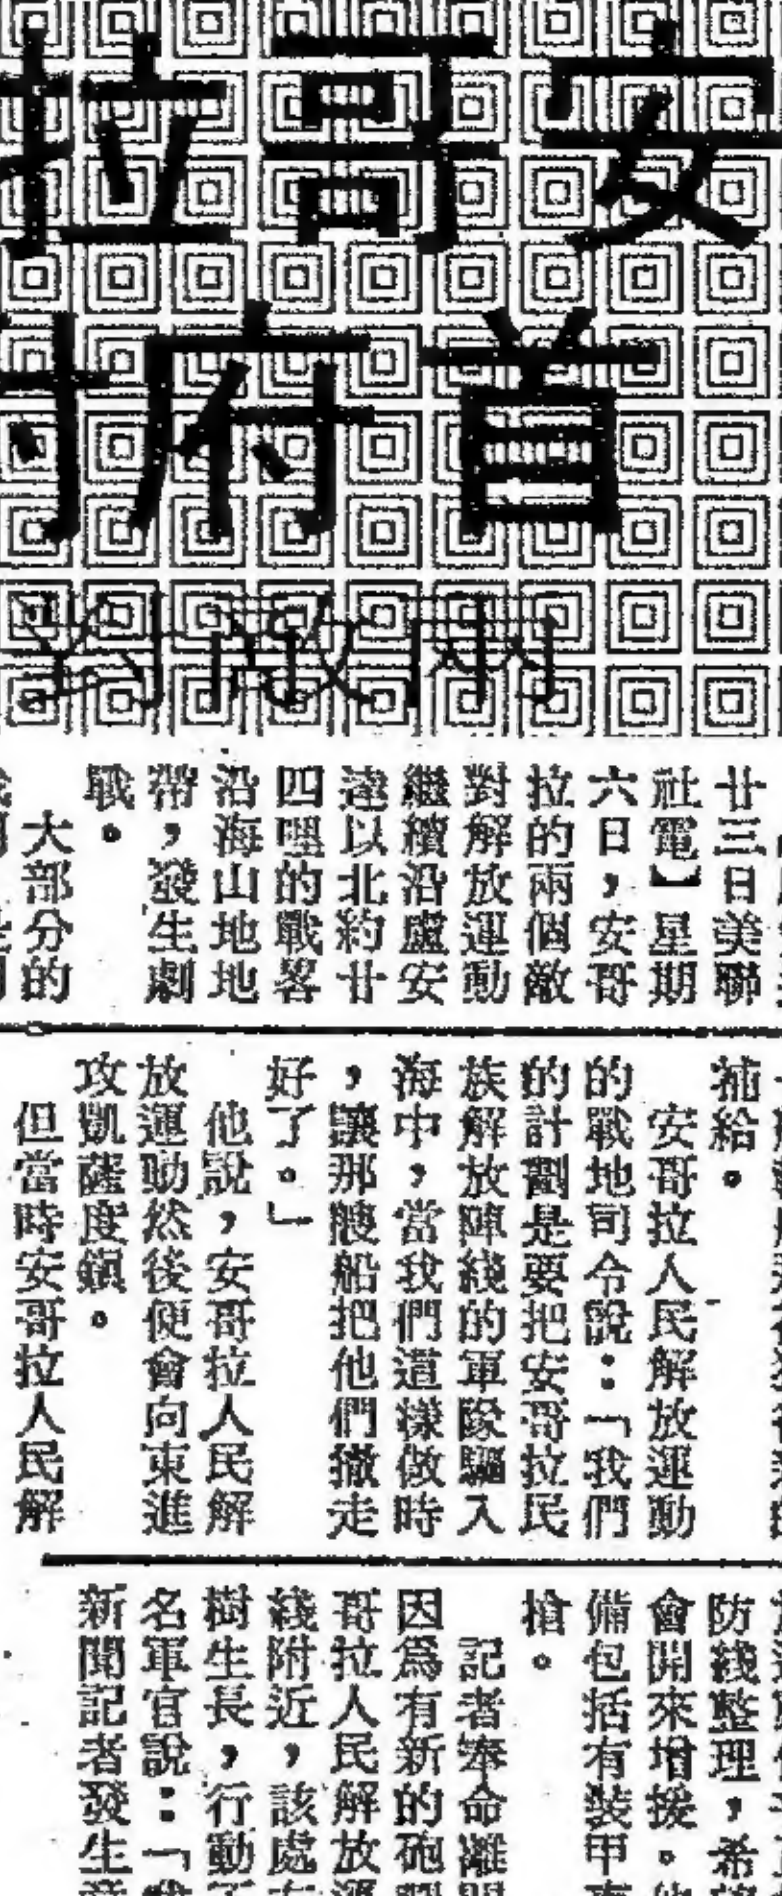 安哥拉
首府
兩敵對
廿三日美聯
社電】星期
六日，安哥
拉的兩個敵
對解放運動
繼續沿盧安
達以北約廿
四哩的戰畧
沿海山地地
帶，發生劇
戰。
大部分的
補給。
安哥拉人民解放運動
的戰地司令說：「我們
的計劃是要把安哥拉民
族解放陣綫的軍隊驅入
海中，當我們這樣做時
，讓那艘船把他們撤走
好了。」
他說，安哥拉人民解
放運動然後便會向東進
攻凱薩度鎮。
但當時安哥拉人民解
防綫整理，希
會開來增援。
備包括有裝甲
槍。
記者奉命離開
因爲有新的砲
哥拉人民解放運
綫附近，該處
樹生長，行動
名軍官說：「
新聞記者發生